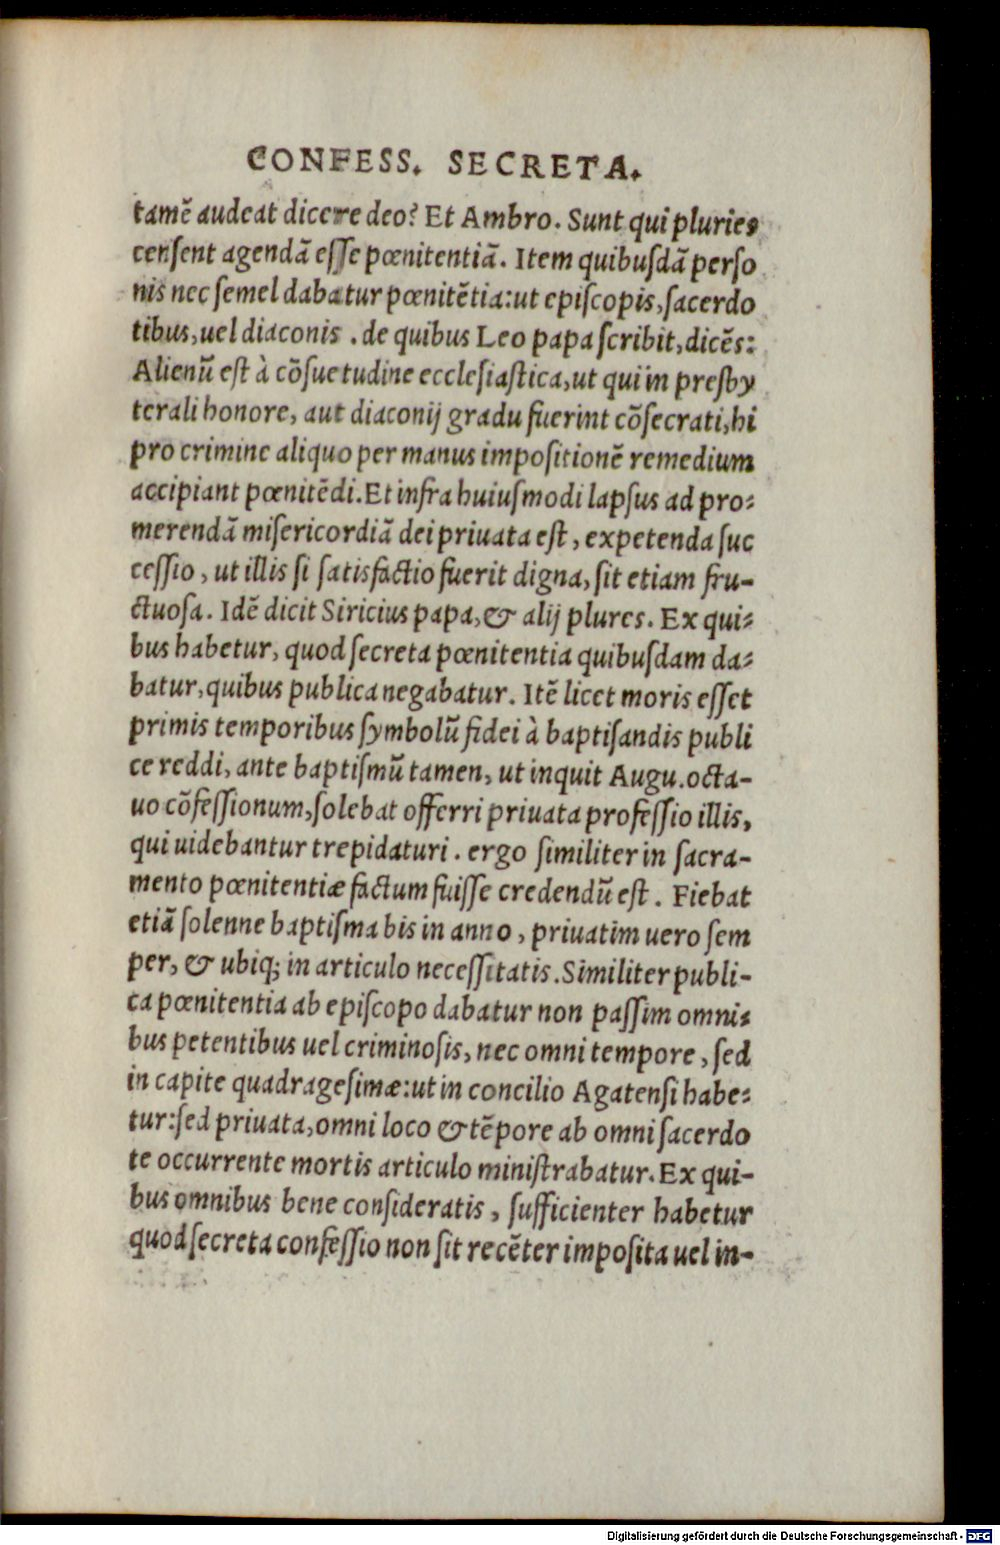 CONFESS. SECRETA.
tamē audeat dicere deo? Et Ambro. Sunt qui pluries
cenſent agendā eſſe pœnitentiā. Item quibuſdā perſo
nis nec ſemel dabatur pœnitētia: ut epiſcopis, ſacerdo
tibus, uel diaconis . de quibus Leo papa ſcribit, dicēs:
Alienū eſt à cōſuetudine eccleſiaſtica, ut qui in preſby
terali honore, aut diaconij gradu fuerint cōſecrati, hi
pro crimine aliquo per manus impoſitionē remedium
accipiant pœnitēdi. Et infra huiuſmodi lapſus ad pro⸗
merendā miſericordiā dei priuata eſt, expetenda ſuc
ceſſio, ut illis ſi ſatisfactio fuerit digna, ſit etiam fru-
ctuoſa. Idē dicit Siricius papa, & alij plures. Ex qui⸗
bus habetur, quod ſecreta pœnitentia quibuſdam da⸗
batur, quibus publica negabatur. Itē licet moris eſſet
primis temporibus ſymbolū fidei à baptiſandis publi
ce reddi, ante baptiſmū tamen, ut inquit Augu. octa-
uo cōfeſſionum, ſolebat offerri priuata profeſſio illis,
qui uidebantur trepidaturi . ergo ſimiliter in ſacra-
mento pœnitentiæ factum fuiſſe credendū eſt . Fiebat
etiā ſolenne baptiſma bis in anno, priuatim uero ſem
per, & ubiq; in articulo neceſſitatis. Similiter publi-
ca pœnitentia ab epiſcopo dabatur non paſſim omni⸗
bus petentibus uel criminoſis, nec omni tempore, ſed
in capite quadrageſimæ: ut in concilio Agatenſi habe⸗
tur: ſed priuata, omni loco & tēpore ab omni ſacerdo
te occurrente mortis articulo miniſtrabatur. Ex qui-
bus omnibus bene conſideratis, ſufficienter habetur
quod ſecreta confeſſio non ſit recēter impoſita uel in-
Digitalisierung gefördert durch die Deutsche Forschungsgemeinschaft - DFG